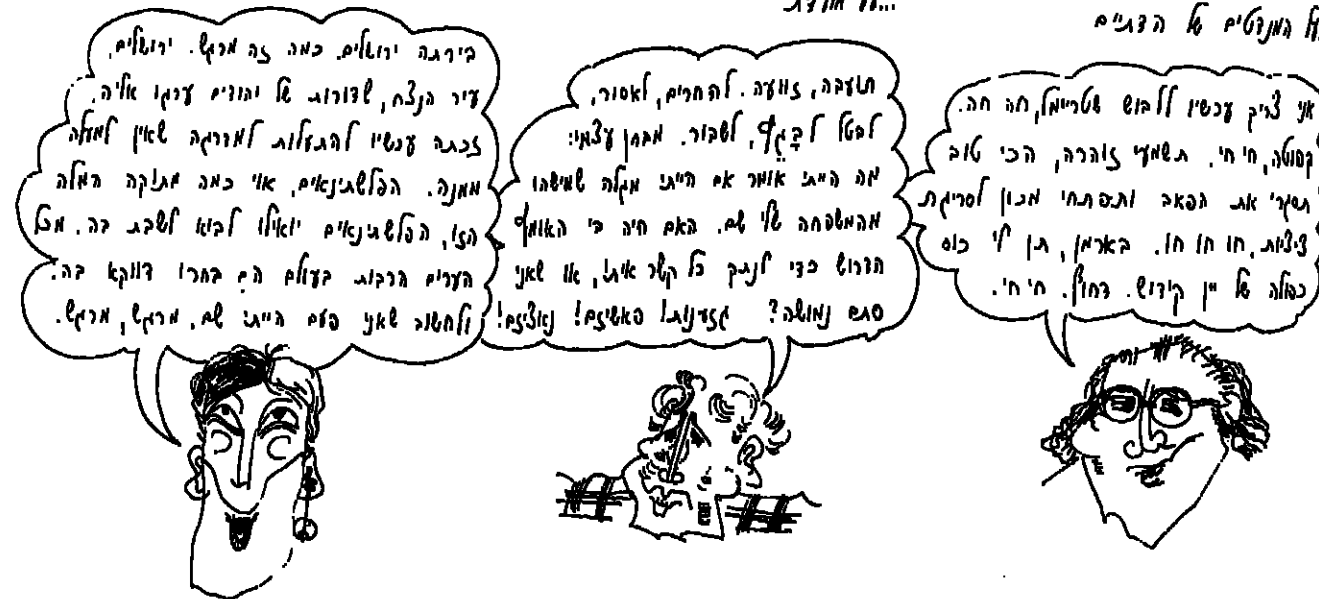 ...על המנדטים של הדתיים
אני צריך עכשיו ללבוש שטריימל, חה חה.
קפוטה, חי חי. תשמעי זוהרה, הכי טוב
תסגרי את הפאב ותפתחי מכון לסריגת
ציציות, חו חו חו. בארמן, תן לי כוס
כפולה של יין קידוש. רחוץ. חי חי.
...על מולדת
תועבה, זוועה. להחרים, לאסור,
לבטל לבגף, לשבור. מבחן עצמי:
מה הייתי אומר אם הייתי מגלה שמישהו
מהמשפחה שלי שם. האם היה בי האומץ
הדרוש כדי לנתק כל קשר איתו, או שאני
סתם נמושה? גזענות! פאשיזם! נאציזם!
בירתה ירושלים. כמה זה מרגש. ירושלים,
עיר הנצח, שדורות של יהודים ערגו אליה,
זכתה עכשיו להתעלות למדרגה שאין למעלה
ממנה. הפלשתינאים, אוי כמה מתוקה המלה
הזו, הפלשתינאים יואילו לבוא לשבת בה. מכל
הערים הרבות בעולם הם בחרו דווקא בה.
ולחשוב שאני פעם הייתי שם, מרגש, מרגש.